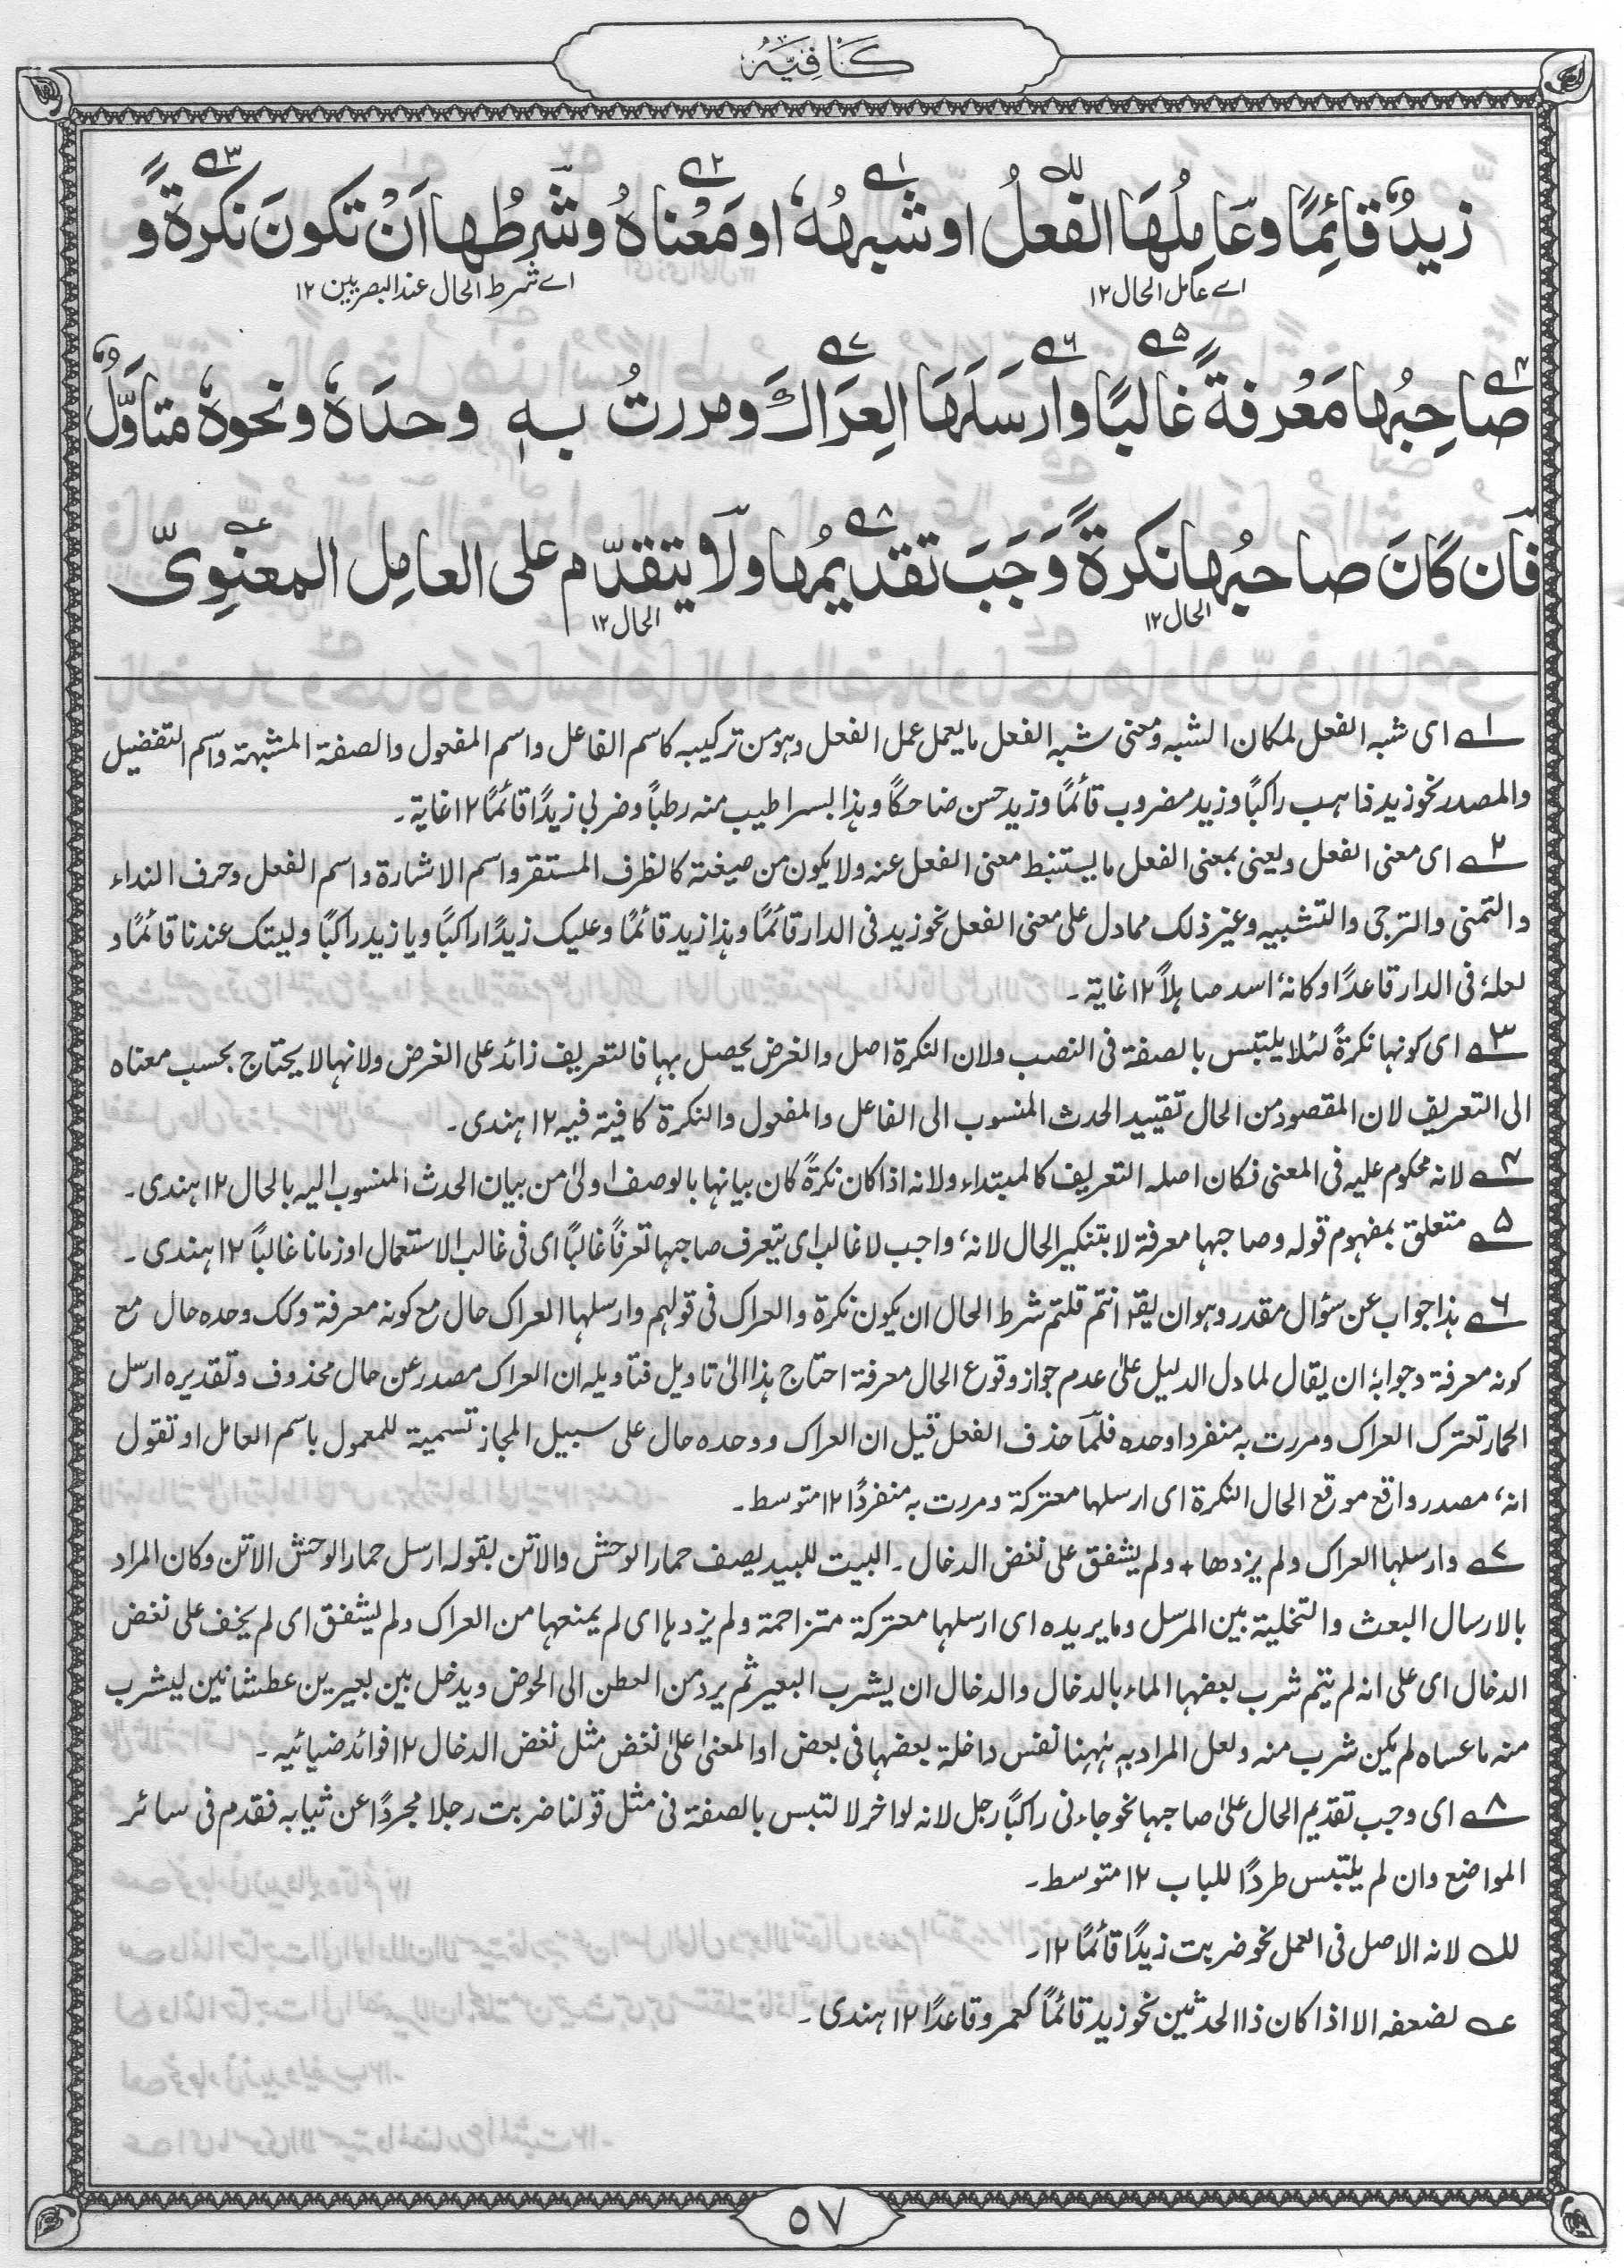 كَافِيَهْ
زيدٌ قائِمًا وعَامِلُهَا الفعلُ او شبهُهٗ او مَعْناهُ وشرطُها اَنْ تكونَ نكرةً و
اے عامل الحال ١٢ اے شرط الحال عند البصريين ١٢
صاحِبُها مَعْرفةً غالبًا وارسَلَهَا العِرَاكَ ومررتُ بهٖ وحدَهٗ ونحوهٗ متاوَّلٌ
فان كَانَ صاحبُها نكرةً وَجَبَ تقديمُها ولا يتقدّم على العامِل المعنوِىّ
الحال ١٢ الحال ١٢
١ اى شبه الفعل لمكان الشبه ومعنى شبه الفعل ما يعمل عمل الفعل وهو من تركيبه كاسم الفاعل واسم المفعول والصفة المشبهة واسم التفضيل
والمصدر نحو زيد ذاهب راكبًا وزيد مضروب قائمًا وزيد حسن ضاحكًا وهذا بسرا طيب منه رطبًا وضربي زيدًا قائمًا ١٢ غاية۔
٢ اى معنى الفعل ويعنى بمعنى الفعل ما يستنبط معنى الفعل عنه ولا يكون من صيغته كالظرف المستقر واسم الاشارة واسم الفعل وحرف النداء
والتمنى والترجى والتشبيه وغير ذلك مما دل على معنى الفعل نحو زيد فى الدار قائمًا وهذا زيد قائمًا وعليك زيدًا راكبًا ويا زيد راكبًا وليتك عندنا قائمًا و
لعلهٗ فى الدار قاعدًا وكانهٗ اسد صاہلاً ١٢ غاية۔
٣ اى كونها نكرةً لئلا يلتبس بالصفة فى النصب ولان النكرة اصل والغرض يحصل بها فالتعريف زائد على الغرض ولانها لا يحتاج بحسب معناه
الى التعريف لان المقصود من الحال تقييد الحدث المنسوب الى الفاعل والمفعول والنكرة كافية فيه ١٢ هندى۔
٤ لانه محكوم عليه فى المعنى فكان اصله التعريف كالمبتداء ولانه اذا كان نكرةً كان بيانها بالوصف اولىٰ من بيان الحدث المنسوب اليه بالحال ١٢ هندى۔
٥ متعلق بمفهوم قوله وصاحبها معرفة لا بتنكير الحال لانهٗ واجب لا غالب اى يتعرف صاحبها تعرفًا غالبًا اى فى غالب الاستعمال او زمانا غالبًا ١٢ هندى۔
٦ هذا جواب عن سؤال مقدر وهو ان يقٓ انتم قلتم شرط الحال ان يكون نكرة والعراك فى قولهم وارسلها العراك حال مع كونه معرفة وكك وحده حال مع
كونه معرفة وجوابهٗ ان يقال لما دل الدليل علىٰ عدم جواز وقوع الحال معرفة احتاج هذا الىٰ تاويل فتاويله ان العراك مصدر عن حال محذوف وتقديره ارسل
الحمار تعترك العراك ومررت به منفردا وحده فلمّا حذف الفعل قيل ان العراك ووحده حال على سبيل المجاز تسمية للمعمول باسم العامل او تقول
انهٗ مصدر واقع موقع الحال النكرة اى ارسلها معتركة ومررت به منفردًا ١٢ متوسط۔
٧ وارسلها العراك ولم يزدها + ولم يشفق على نغض الدخال۔ البيت للبيد يصف حمار الوحش والاتن بقوله ارسل حمار الوحش الاتن وكان المراد
بالارسال البعث والتخلية بين المرسل وما يريده اى ارسلها معتركة متزاحمة ولم يزدها اى لم يمنعها من العراك ولم يشفق اى لم يخف على نغض
الدخال اى على انه لم يتم شرب بعضها الماء بالدخال والدخال ان يشرب البعير ثم يرد من العطن الى الحوض ويدخل بين بعيرين عطشانين ليشرب
منه ما عساه لم يكن شرب منه ولعل المراد به ههنا نفس داخلة بعضها فى بعض او المعنىٰ علىٰ نغض مثل نغض الدخال ١٢ فوائد ضيائيه۔
٨ اى وجب تقديم الحال علىٰ صاحبها نحو جاءنى راكبًا رجل لانه لو اخر لالتبس بالصفة فى مثل قولنا ضربت رجلا مجردًا عن ثيابه فقدم فى سائر
المواضع وان لم يلتبس طردًا للباب ١٢ متوسط۔
لله لانه الاصل فى العمل نحو ضربت زيدًا قائمًا ١٢۔
عہ لضعفه الا اذا كان ذا الحدثين نحو زيد قائمًا كعمرو قاعدًا ١٢ هندى۔
٥٧